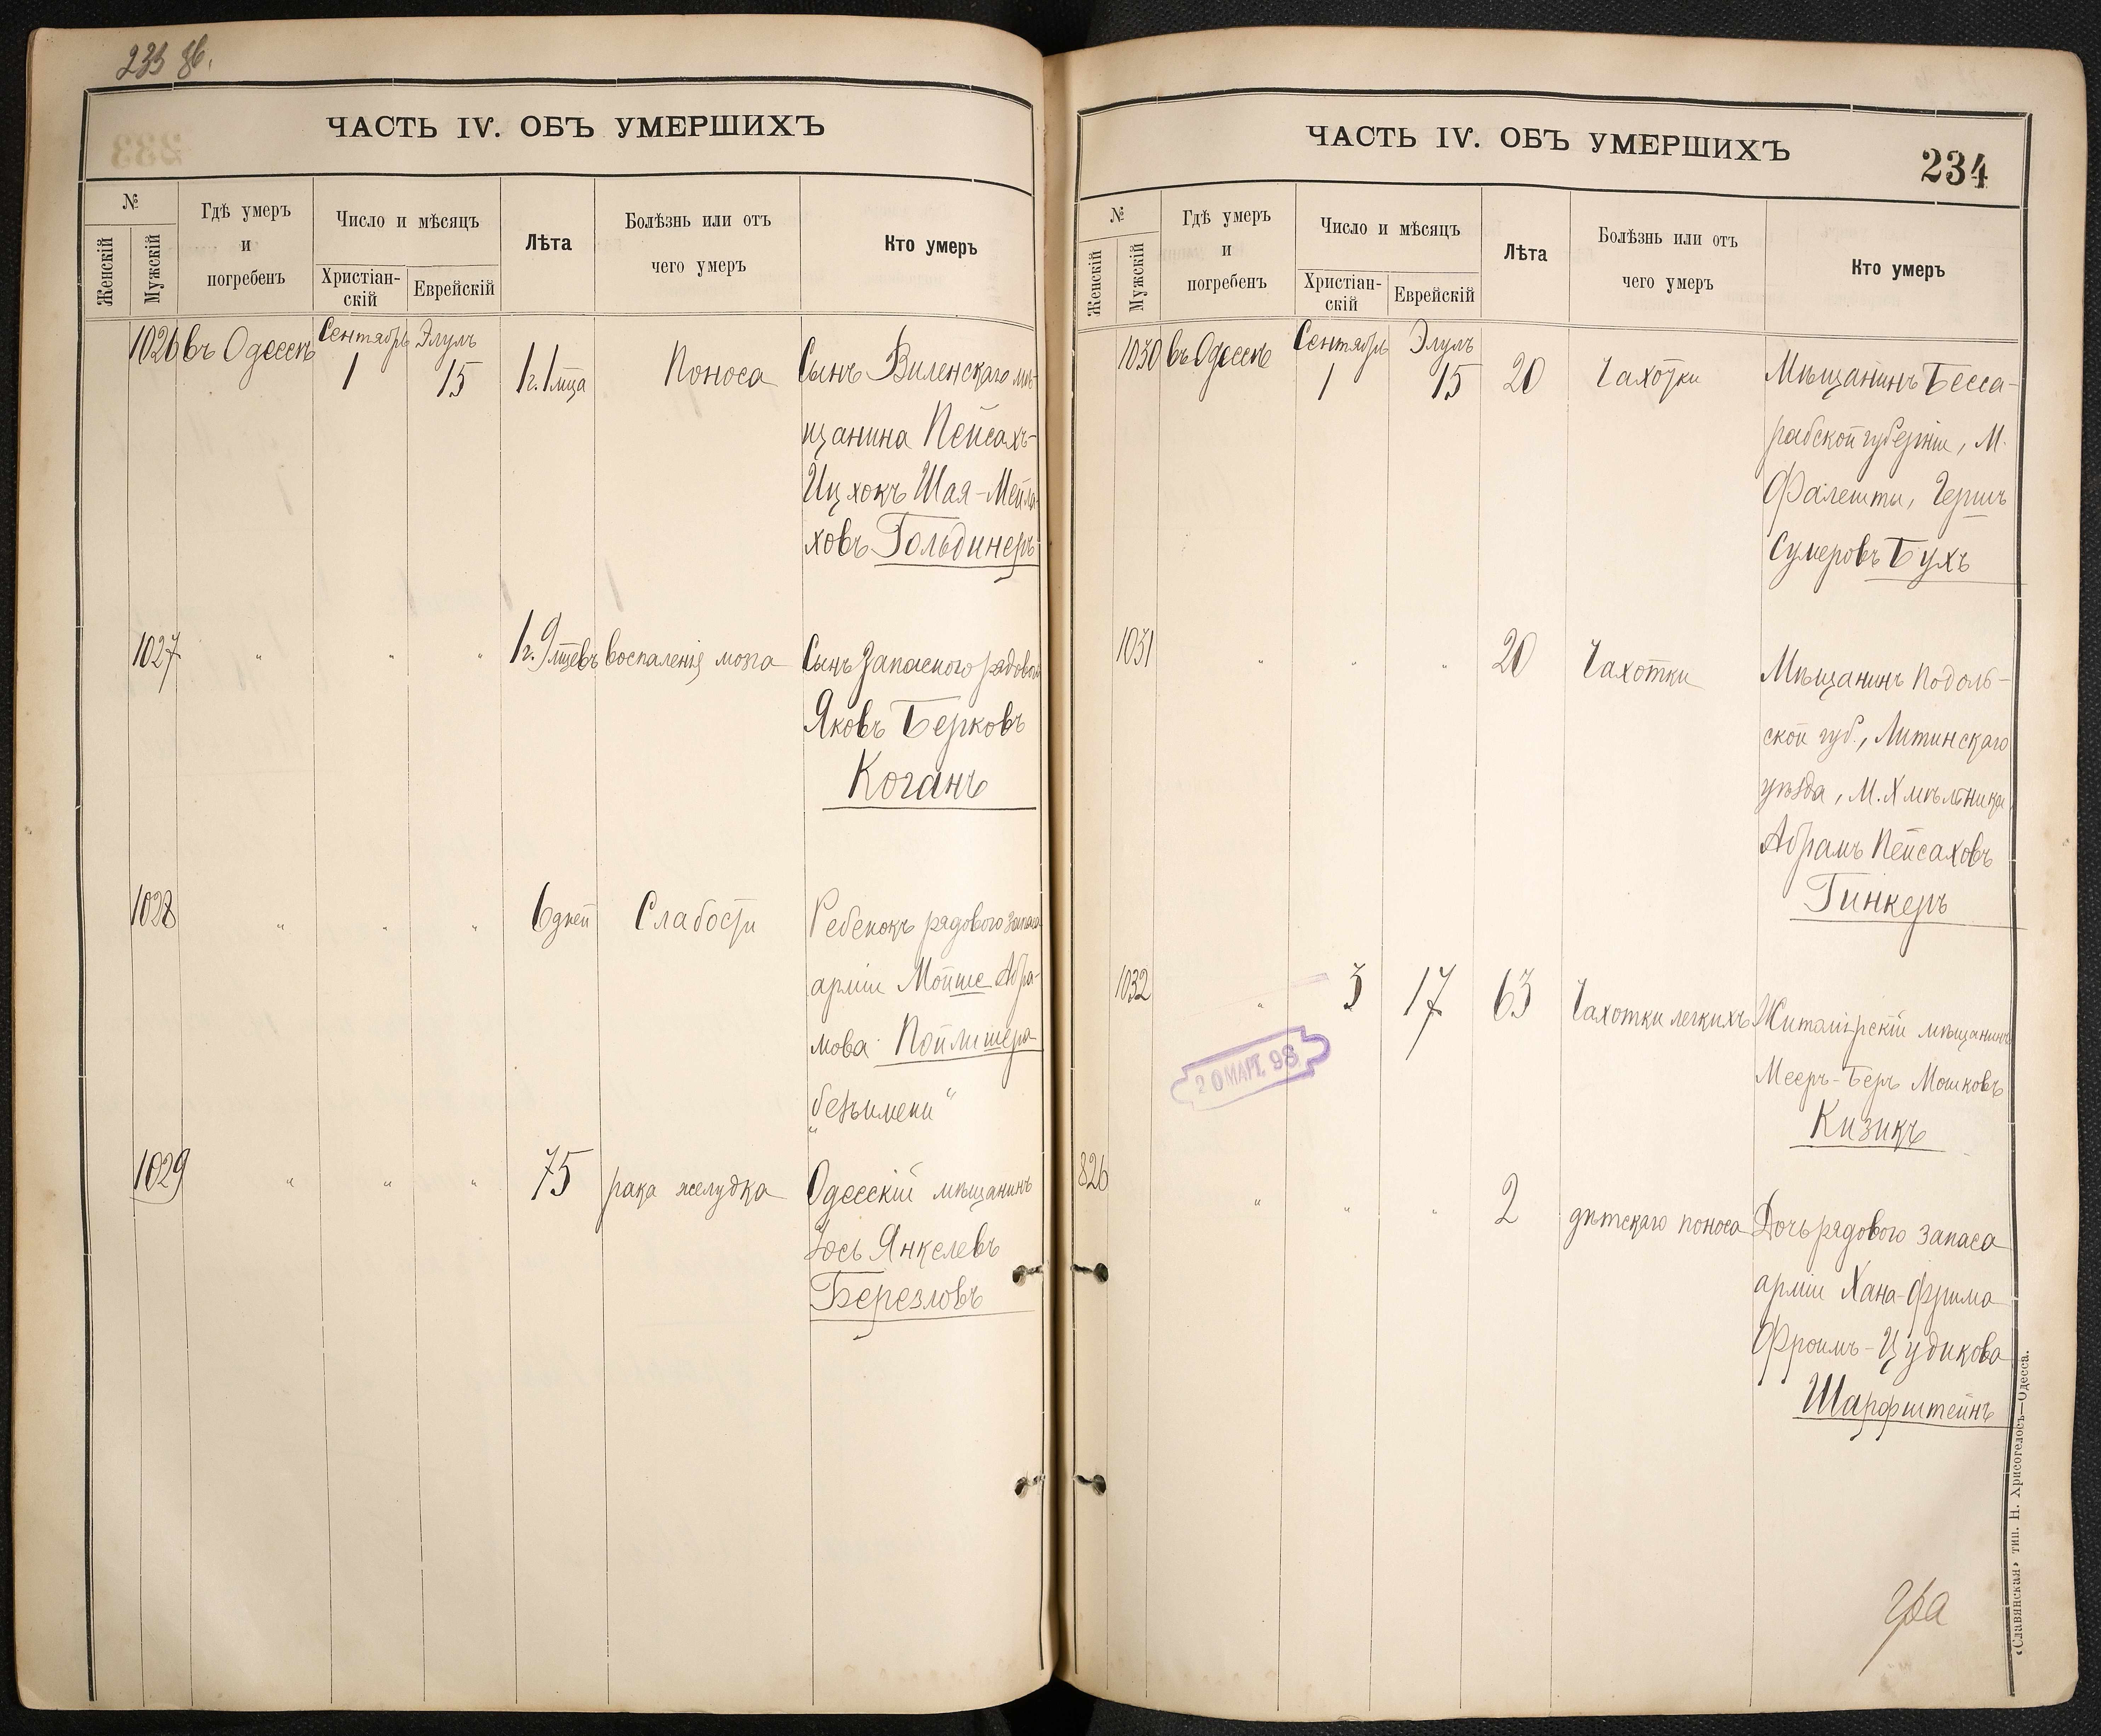 233 об.
ЧАСТЬ IV. ОБЪ УМЕРШИХЪ
№
Женскій
Мужскій
Гдѣ умеръ
и
погребенъ
Число и мѣсяцъ
Христіан-
скій
Еврейскій
Лѣта
Болѣзнь или отъ
чего умеръ
Кто умеръ
1026 въ Одессѣ Сентябрь 1 Элулъ 15 1 г. 1 мца Поноса Сынъ Виленскаго мѣ-
щанина Пейсахъ-
Ицхокъ Шая-Мейла-
ховъ Гольдинеръ
1027 " " " 1 г. 9 мцевъ воспаленія мозга Сынъ Запасного рядового
Яковъ Берковъ
Коганъ
1028 " " " 6 дней Слабости Ребенокъ рядового запаса
арміи Мойше Абра-
мова Пойлишера
"безъимени"
1029 " " " 75 рака желудка Одесскій мѣщанинъ
Іось Янкелевъ
Березловъ
ЧАСТЬ IV. ОБЪ УМЕРШИХЪ
234
№
Женскій
Мужскій
Гдѣ умеръ
и
погребенъ
Число и мѣсяцъ
Христіан-
скій
Еврейскій
Лѣта
Болѣзнь или отъ
чего умеръ
Кто умеръ
1030 въ Одессѣ Сентябрь 1 Элулъ 15 20 Чахотки Мѣщанинъ Бесса-
рабской губерніи, М.
Фалешты, Гершъ
Сумеровъ Бухъ
1031 " " " 20 Чахотки Мѣщанинъ Подоль-
ской губ., Литинскаго
уѣзда, М. Хмѣльника
Абрамъ Пейсаховъ
Гинкеръ
1032 " 3 17 63 Чахотки легкихъ Житомірскій мѣщанинъ
Мееръ-Беръ Мошковъ
Кизикъ
20 МАРТ. 98
826 " " " 2 дѣтскаго поноса Дочь рядового запаса
арміи Хана-Фрима
Фроимъ-Цудикова
Шарфштейнъ
«Славянская» тип. Н. Хрисогелосъ—Одесса.